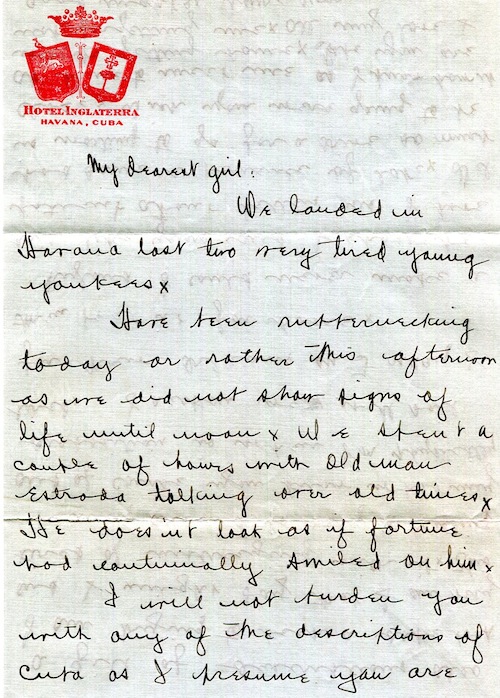 HOTEL INGLATERRA
HAVANA, CUBA
My dearest girl.
We landed in
Havana last two very tired young
yankees x
Have been rubbernecking
today or rather this afternoon
as we did not show signs of
life until noon x We spent a
couple of hours with old man
Estrada talking over old times x
He doesn't look as if fortune
had continually smiled on him x
I will not burden you
with any of the descriptions of
Cuba as I presume you are